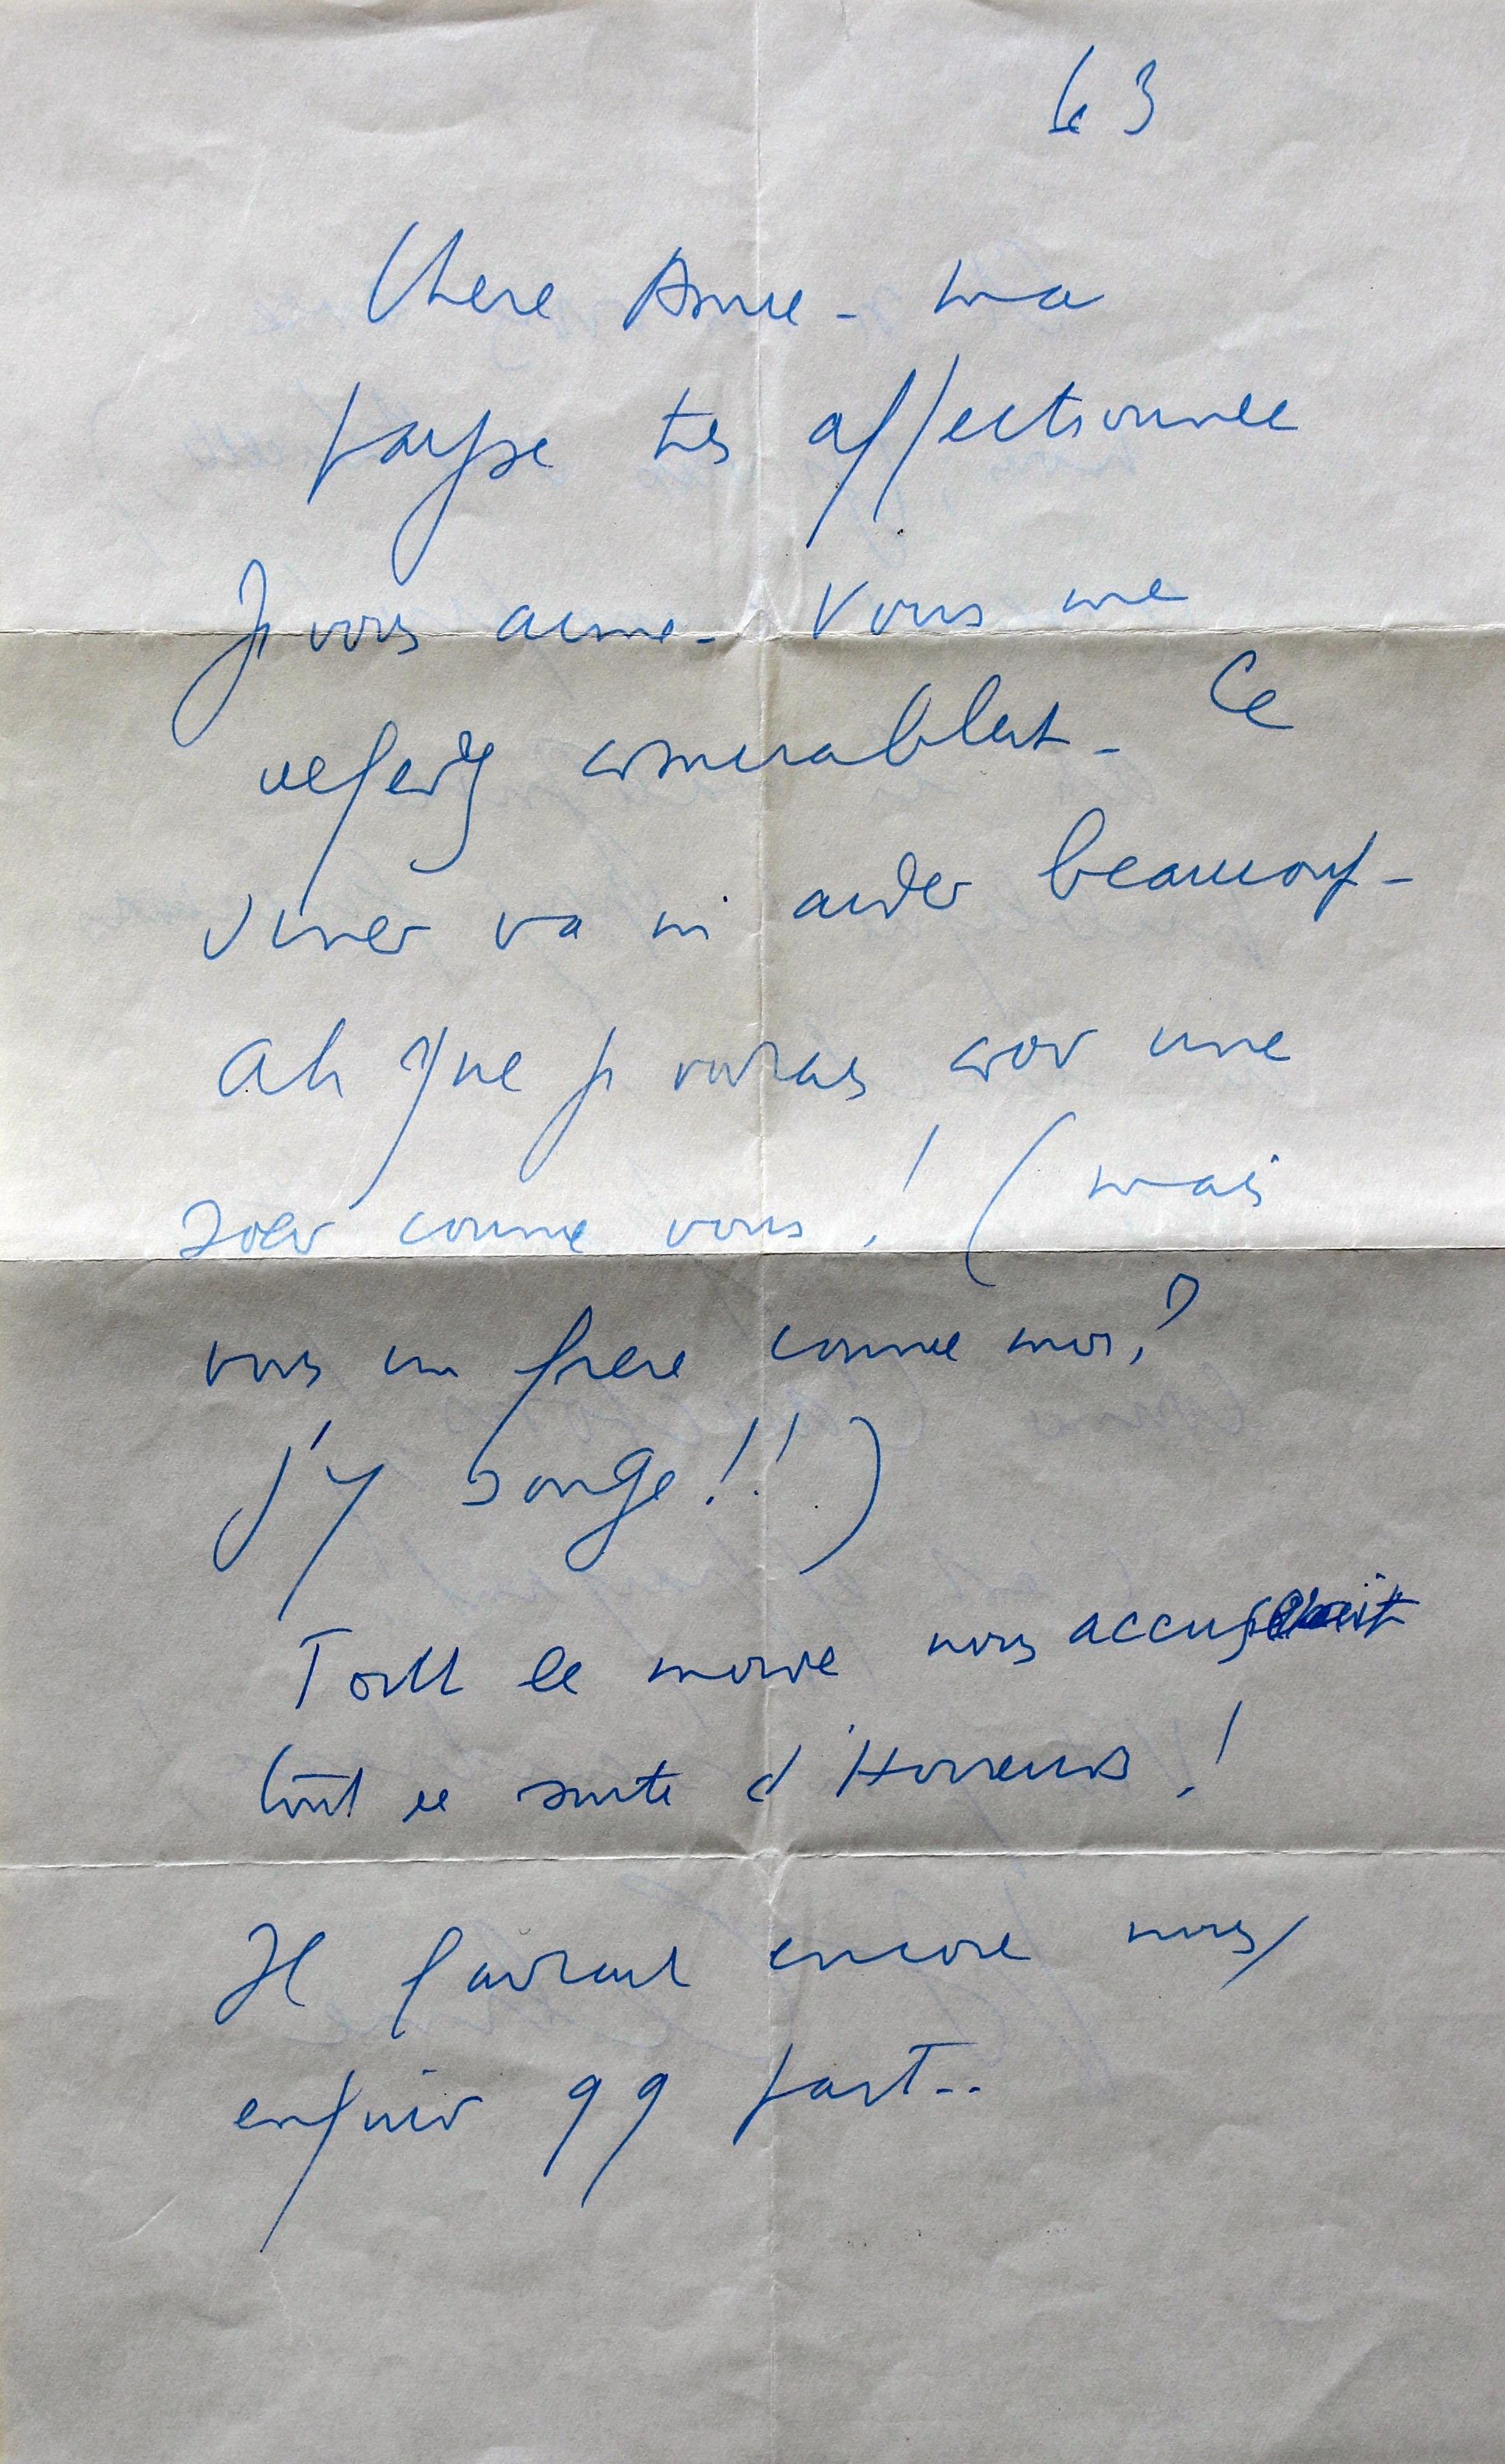 Le 3
Chere Anne - ma
payse tres affectionnee
Je vous aime - Vous me
comurablent - Ce
diner va m'aider beaucoup -
ah que je voudrais avoir une
soeur comme vous ! (mais
vous un frere comme moi ?
j'y songe !! )
Tout le monde nous accuserait
tout de suite d'Horreurs !
Il faudrait encore nous
enfuir qq part..